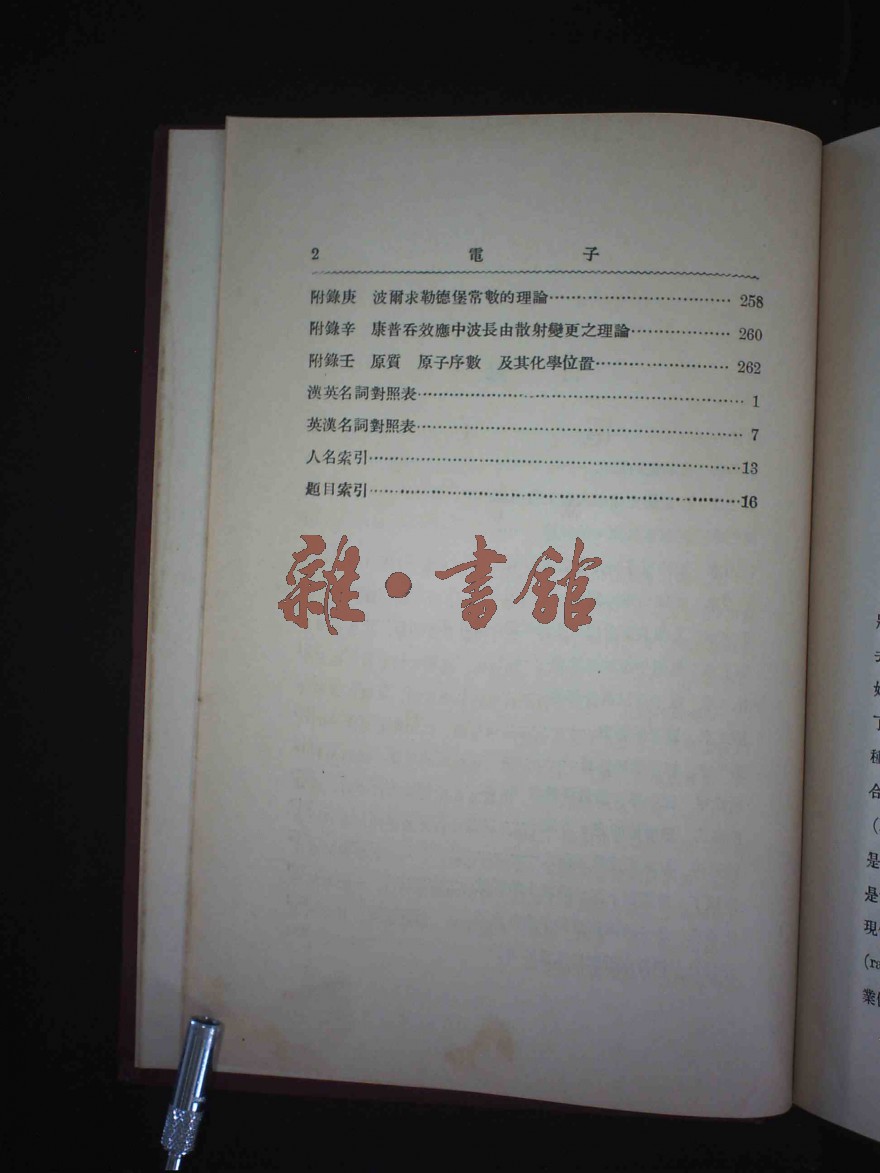 2 電子
附錄庚 波爾求勒德堡常數的理論 258
附錄辛 康普吞效應中波長由散射變更之理論 260
附錄壬 原質 原子序數 及其化學位置 262
漢英名詞對照表 1
英漢名詞對照表 7
人名索引 13
題目索引 16
雜·書館
種
合
是
是
現
(ra
業